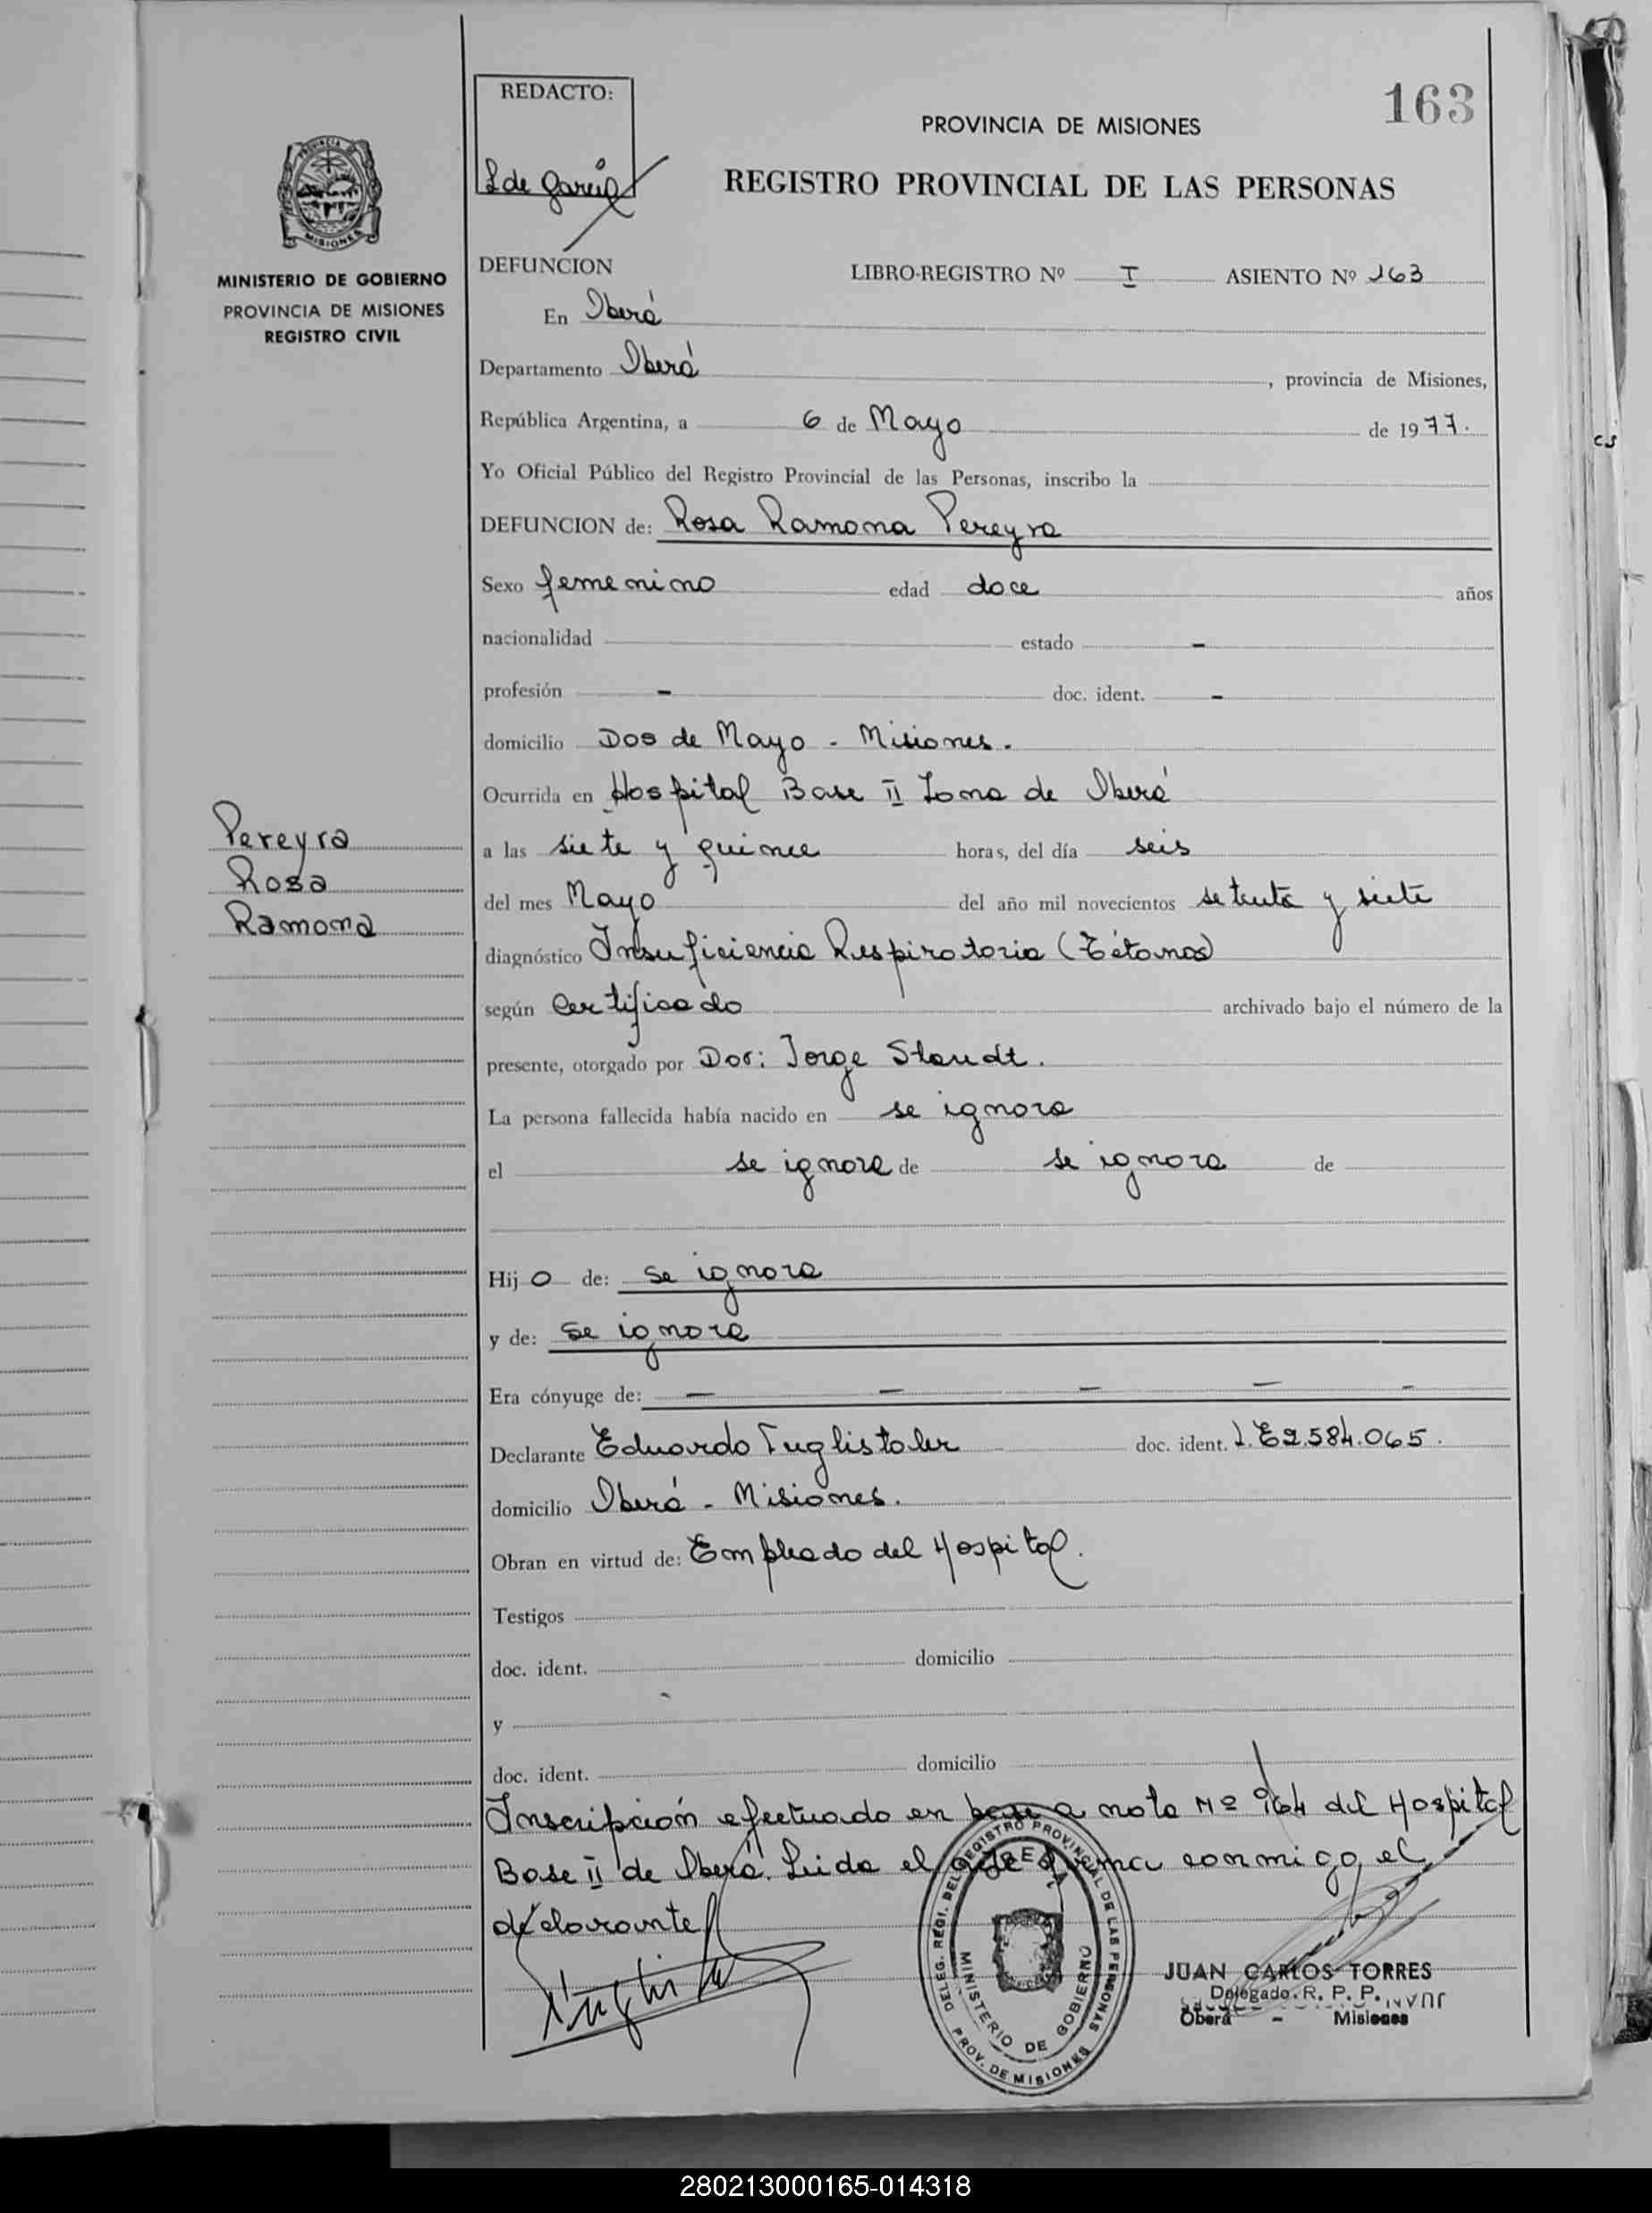 REDACTO:
L de García
163
PROVINCIA DE MISIONES
REGISTRO PROVINCIAL DE LAS PERSONAS
MINISTERIO DE GOBIERNO
PROVINCIA DE MISIONES
REGISTRO CIVIL
DEFUNCION
LIBRO-REGISTRO Nº I ASIENTO Nº 163
En Oberá
Departamento Oberá, provincia de Misiones,
República Argentina, a 6 de Mayo de 1977.
Yo Oficial Público del Registro Provincial de las Personas, inscribo la
DEFUNCION de: Rosa Ramona Pereyra
Sexo femenino edad doce años
nacionalidad estado -
profesión - doc. ident. -
domicilio Dos de Mayo - Misiones.
Ocurrida en Hospital Base II Zona de Oberá
Pereyra
Rosa
Ramona
a las siete y quince horas, del día seis
del mes Mayo del año mil novecientos setenta y siete
diagnóstico Insuficiencia Respiratoria (Tétanos)
según Certificado archivado bajo el número de la
presente, otorgado por Dor: Jorge Staudt.
La persona fallecida había nacido en se ignora
el se ignora de se ignora de
Hijo de: se ignora
y de: se ignora
Era cónyuge de: - - - - -
Declarante Eduardo Tuglistaler doc. ident. L.E 2.584.065.
domicilio Oberá - Misiones.
Obran en virtud de: Empleado del Hospital.
Testigos
doc. ident. domicilio
y
doc. ident. domicilio
Inscripción efectuado en base a nota Nº 164 del Hospital
Base II de Oberá. Leida el acta firma conmigo el
declarante
DELEG. REGI. DEL REGISTRO PROVINCIAL DE LAS PERSONAS
PROV. DE MISIONES
MINISTERIO DE GOBIERNO
JUAN CARLOS TORRES
Delegado. R. P. P.
Oberá - Misiones
280213000165-014318